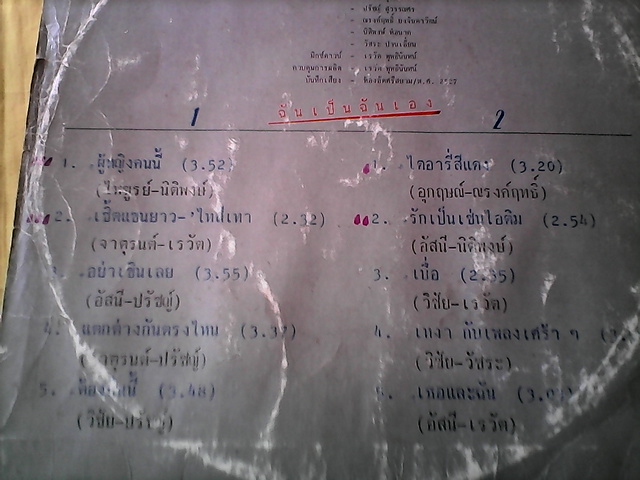 - ปรัชญ์ สุวรรณศร
- ณรงค์ฤทธิ์
- นิติพงษ์ ห่อนาค
- วัชระ ปานเอี่ยม
มิกซ์ดาวน์ - เรวัต พุทธินันทน์
ควบคุมการผลิต - เรวัต พุทธินันทน์
บันทึกเสียง - ห้องอัดศรีสยาม/
ฉันเป็นฉันเอง
1
2
1. ผู้หญิงคนนี้ (3.52)
(ไพฑูรย์-นิติพงษ์)
2. เชิ้ตแขนยาว- (2.32)
(จาตุรนต์-เรวัต)
อย่าเขินเลย (3.55)
(อัสนี-ปรัชญ์)
4. แตกต่างกันตรงไหน (3.37)
(จาตุรนต์-ปรัชญ์)
5. (3.48)
(วิชัย-ปรัชญ์)
1. ไดอารี่สีแดง (3.20)
(อุกฤษณ์-ณรงค์ฤทธิ์)
2. รักเป็นเช่นไอติม (2.54)
(อัสนี-นิติพงษ์)
3. เบื่อ
(วิชัย-เรวัต)
4. เหงา กับเพลงเศร้า ๆ
(วิชัย-วัชระ)
เธอและฉัน
(อัสนี-เรวัต)